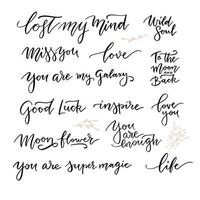 lost my mind
Wild
Soul
Miss you
love
To the
Moon
and
Back
You are my Galaxy
Good Luck
inspire
love
you
Moon flower
You
are
enough
you are super magic
life